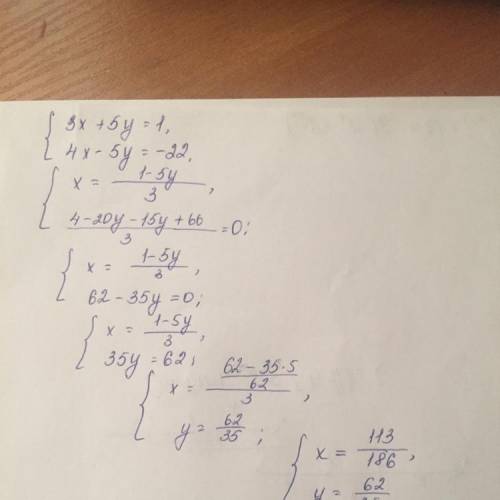 { 3x + 5y = 1,
4x - 5y = -22,
{ x = (1-5y)/3,
(4-20y-15y+66)/3 = 0;
{ x = (1-5y)/3,
62-35y = 0;
{ x = (1-5y)/3,
35y = 62;
{ x = ((62-35·5)/62)/3,
y = 62/35;
{ x = 113/186,
y = 62/